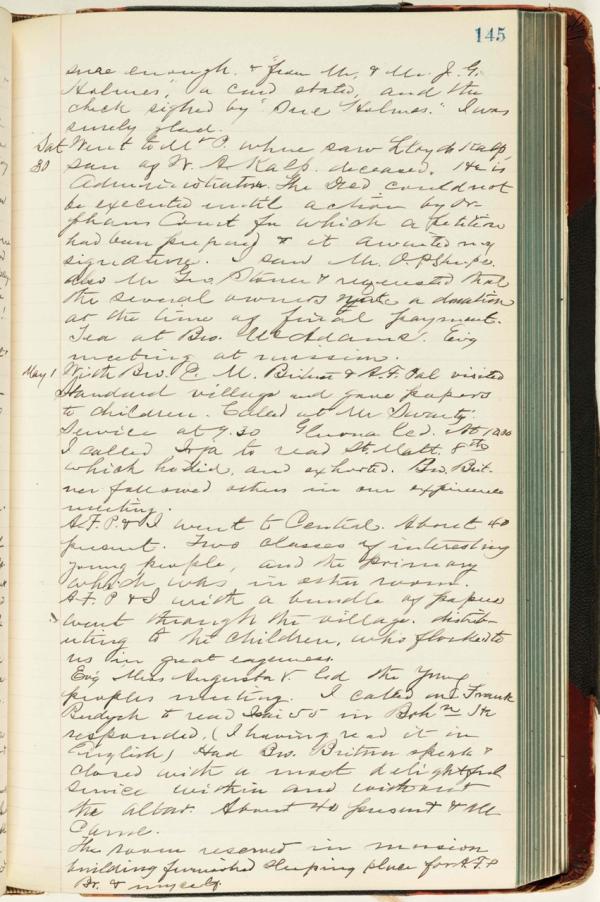 145
sure enough. & "from Mr. & Mr. J. G.
Holmes," a card stated, and the
check signed by "Dave Holmes." I was
surely glad.
Sat Went to Mt P. where saw Lloyd Kalp,
30 son of W. A. Kalp. deceased. He is
Administration. The Deed could not
be executed until action by Or-
phans Court for which a petition
had been prepared & it awaited my
signature. I saw Mr. O. P.
also Mr Geo. Stoner & requested that
the several owners make a donation
at the time of final payment.
Tea at Bro. McAdams. Evg
meeting at mission.
May 1 With Bro. E. M. Bitner & A. F. Pal visited
Standard village and gave papers
to children. Called at Mr
Service at 9.30 led. At 10.30
I called to read St. Matt. 8th
which he did, and exhorted. Bro. Bit-
ner followed others in our experience
meeting.
A. F. P. & I went to Central. About 40
present. Two classes of interesting
young people, and the primary
which was in other room.
A. F. P & I with a bundle of papers
went through the village. distrib-
uting to the children, who flocked to
us in great eagerness.
Evg Miss Augusta V. led the Young
peoples meeting. I called on Frank
to read Isai 55 in Bohn He
responded, (I having read it in
English) Had Bro. Bitner speak &
closed with a most delightful
service within and without
the altar. About 40 present & Mr
The room reserved in mission
building furnished sleeping place for A. F. P
Br. & myself.